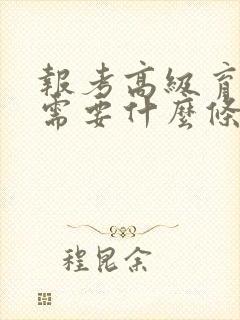 報考高級育
需要什麼條
程昆余